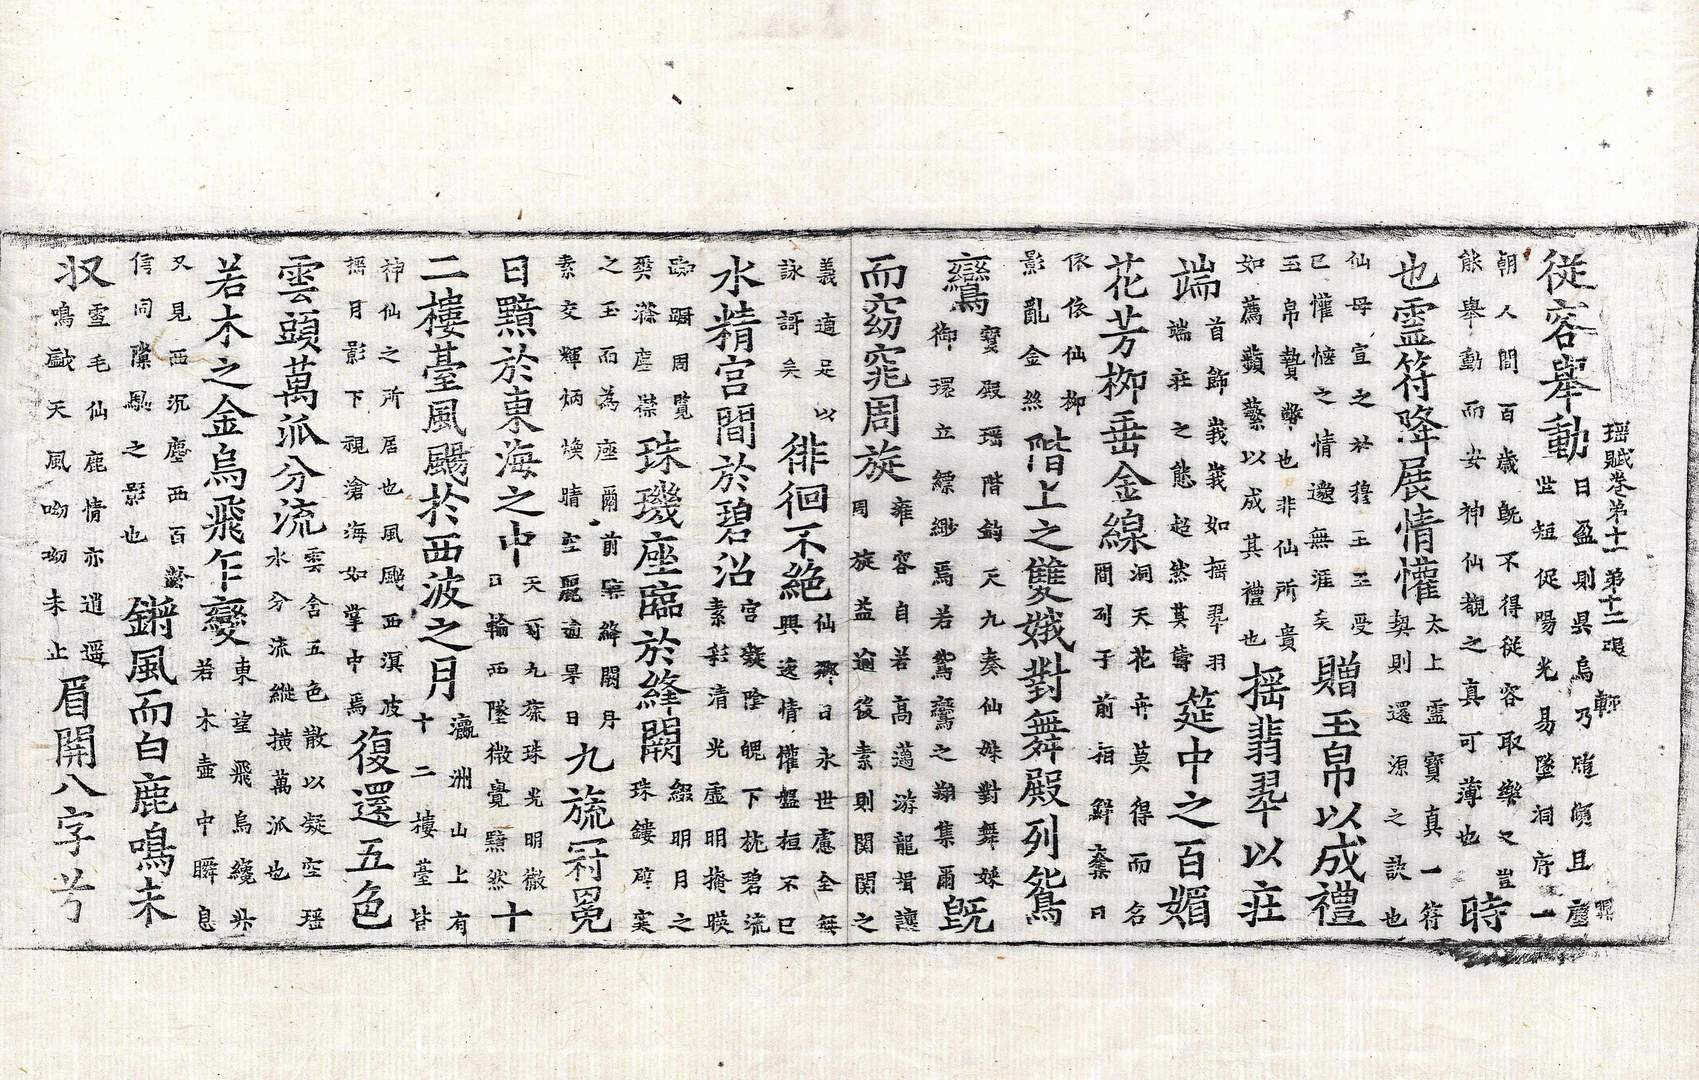 瑶賦卷第十一 第十二張
從容舉動日盈則昃烏乃墮傾且塵世短促陽光易墜洞府一
朝人間百歲既不得從容取樂又豈態舉動而安神仙觀之真可薄也時
也霊符降展情懽太上霊寶真一符契則還源之訣也
仙母宣之於穆王王受已懽愜之情邈無涯矣贈玉帛以成禮
玉帛贄幣也非仙所貴如薦蘋蘩以成其禮也揺翡翠以莊
端首飾峩峩如揺翠羽端莊之態超然莫儔筵中之百媚
花芳栁垂金線洞天花卉莫得而名間列于前相鮮日
依依仙栁影亂金絲階上之雙娥對舞殿列鴛
鸞寳殿瑶階鈞天九奏仙姝對舞姝御環立縹緲焉若鴛鸞之翔集爾既
而窈窕周旋雍容自若高邁游龍揖讓周旋益逾後素則関関之
義適足以詠謌矣徘徊不絶仙郷日永世慮全無興逸情懽盤桓不已
水精宮間於碧沼宮凝陰魄下枕碧流素彩清光虚明掩暎
踟蹰周覽爽滌塵襟珠璣座臨於絳闕綴明月之珠鏤碎
之玉而為座爾前絳闕丹素交輝炳煥晴空麗逾杲日九旒冠冕
日黯於東海之中天九旒珠光明徹日輪西墜微覺黯然十
二樓臺風颺於西波之月瀛洲山上有十二樓臺皆
神仙之所居也風颭西溟波揺月影下視滄海如掌中焉復還五色
雲頭萬派分流雲含五色散以凝空瑶水分流縱横萬派也
若木之金烏飛乍變東望飛烏纔升若木壺中瞬息
又見西沉塵西百齡信同隙駒之影也鏘風而白鹿鳴未
収雪毛仙鹿情亦逍遥鳴戯天風呦呦未止眉開八字兮